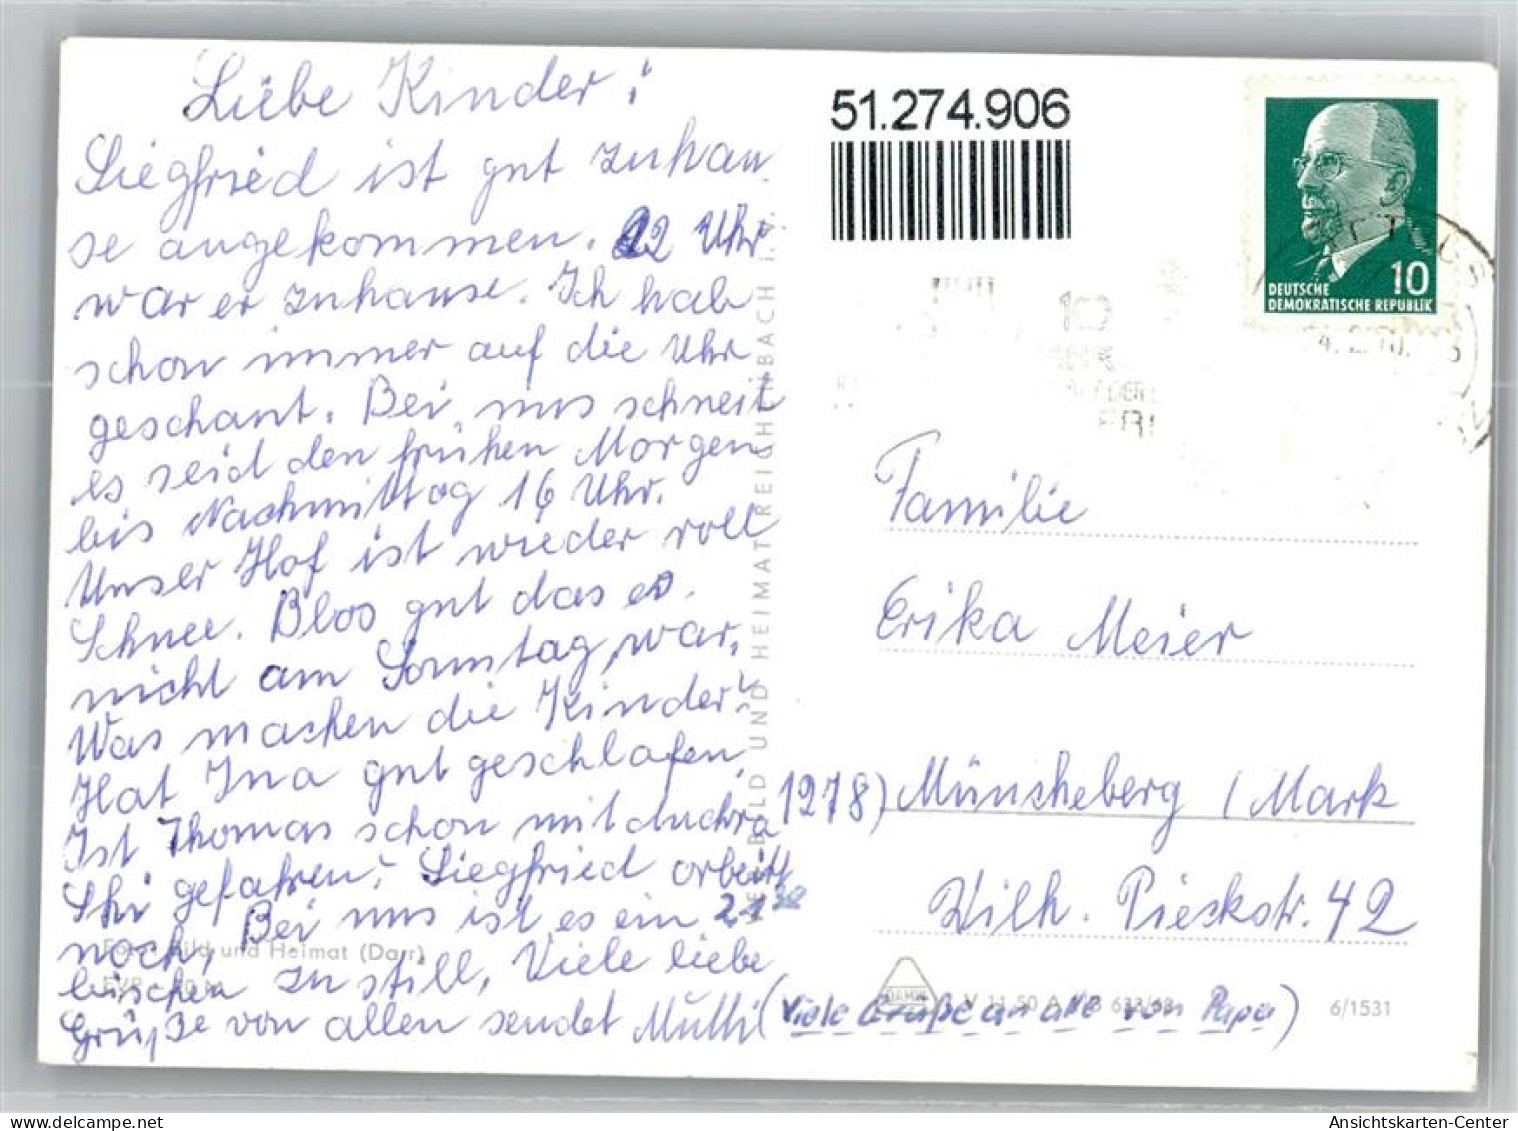 Liebe Kinder!
Siegfried ist gut zuhau
se angekommen. 22 Uhr
war er zuhause. Ich hab
schon immer auf die Uhr
geschaut. Bei uns schneit
es seid den frühen Morgen
bis Nachmittag 16 Uhr.
Unser Hof ist wieder voll
Schnee. Blos gut das es
nicht am Sonntag war.
Was machen die Kinder?
Hat Ina gut geschlafen,
Ist Thomas schon mit
Ski gefahren? Siegfried arbeitt
noch, Bei uns ist es ein
bischen zu still, Viele liebe
Grüße von allen sendet Mutti (Viele Grüße an alle von Papa)
51.274.906
10
DEUTSCHE
DEMOKRATISCHE REPUBLIK
Familie
Erika Meier
1278) Müncheberg / Mark
Wilh. Pieckstr. 42
BILD UND HEIMAT REICHENBACH I. V.
Foto: Bild und Heimat (Darr)
V 11 50 A 633/68
6/1531
Ansichtskarten-Center